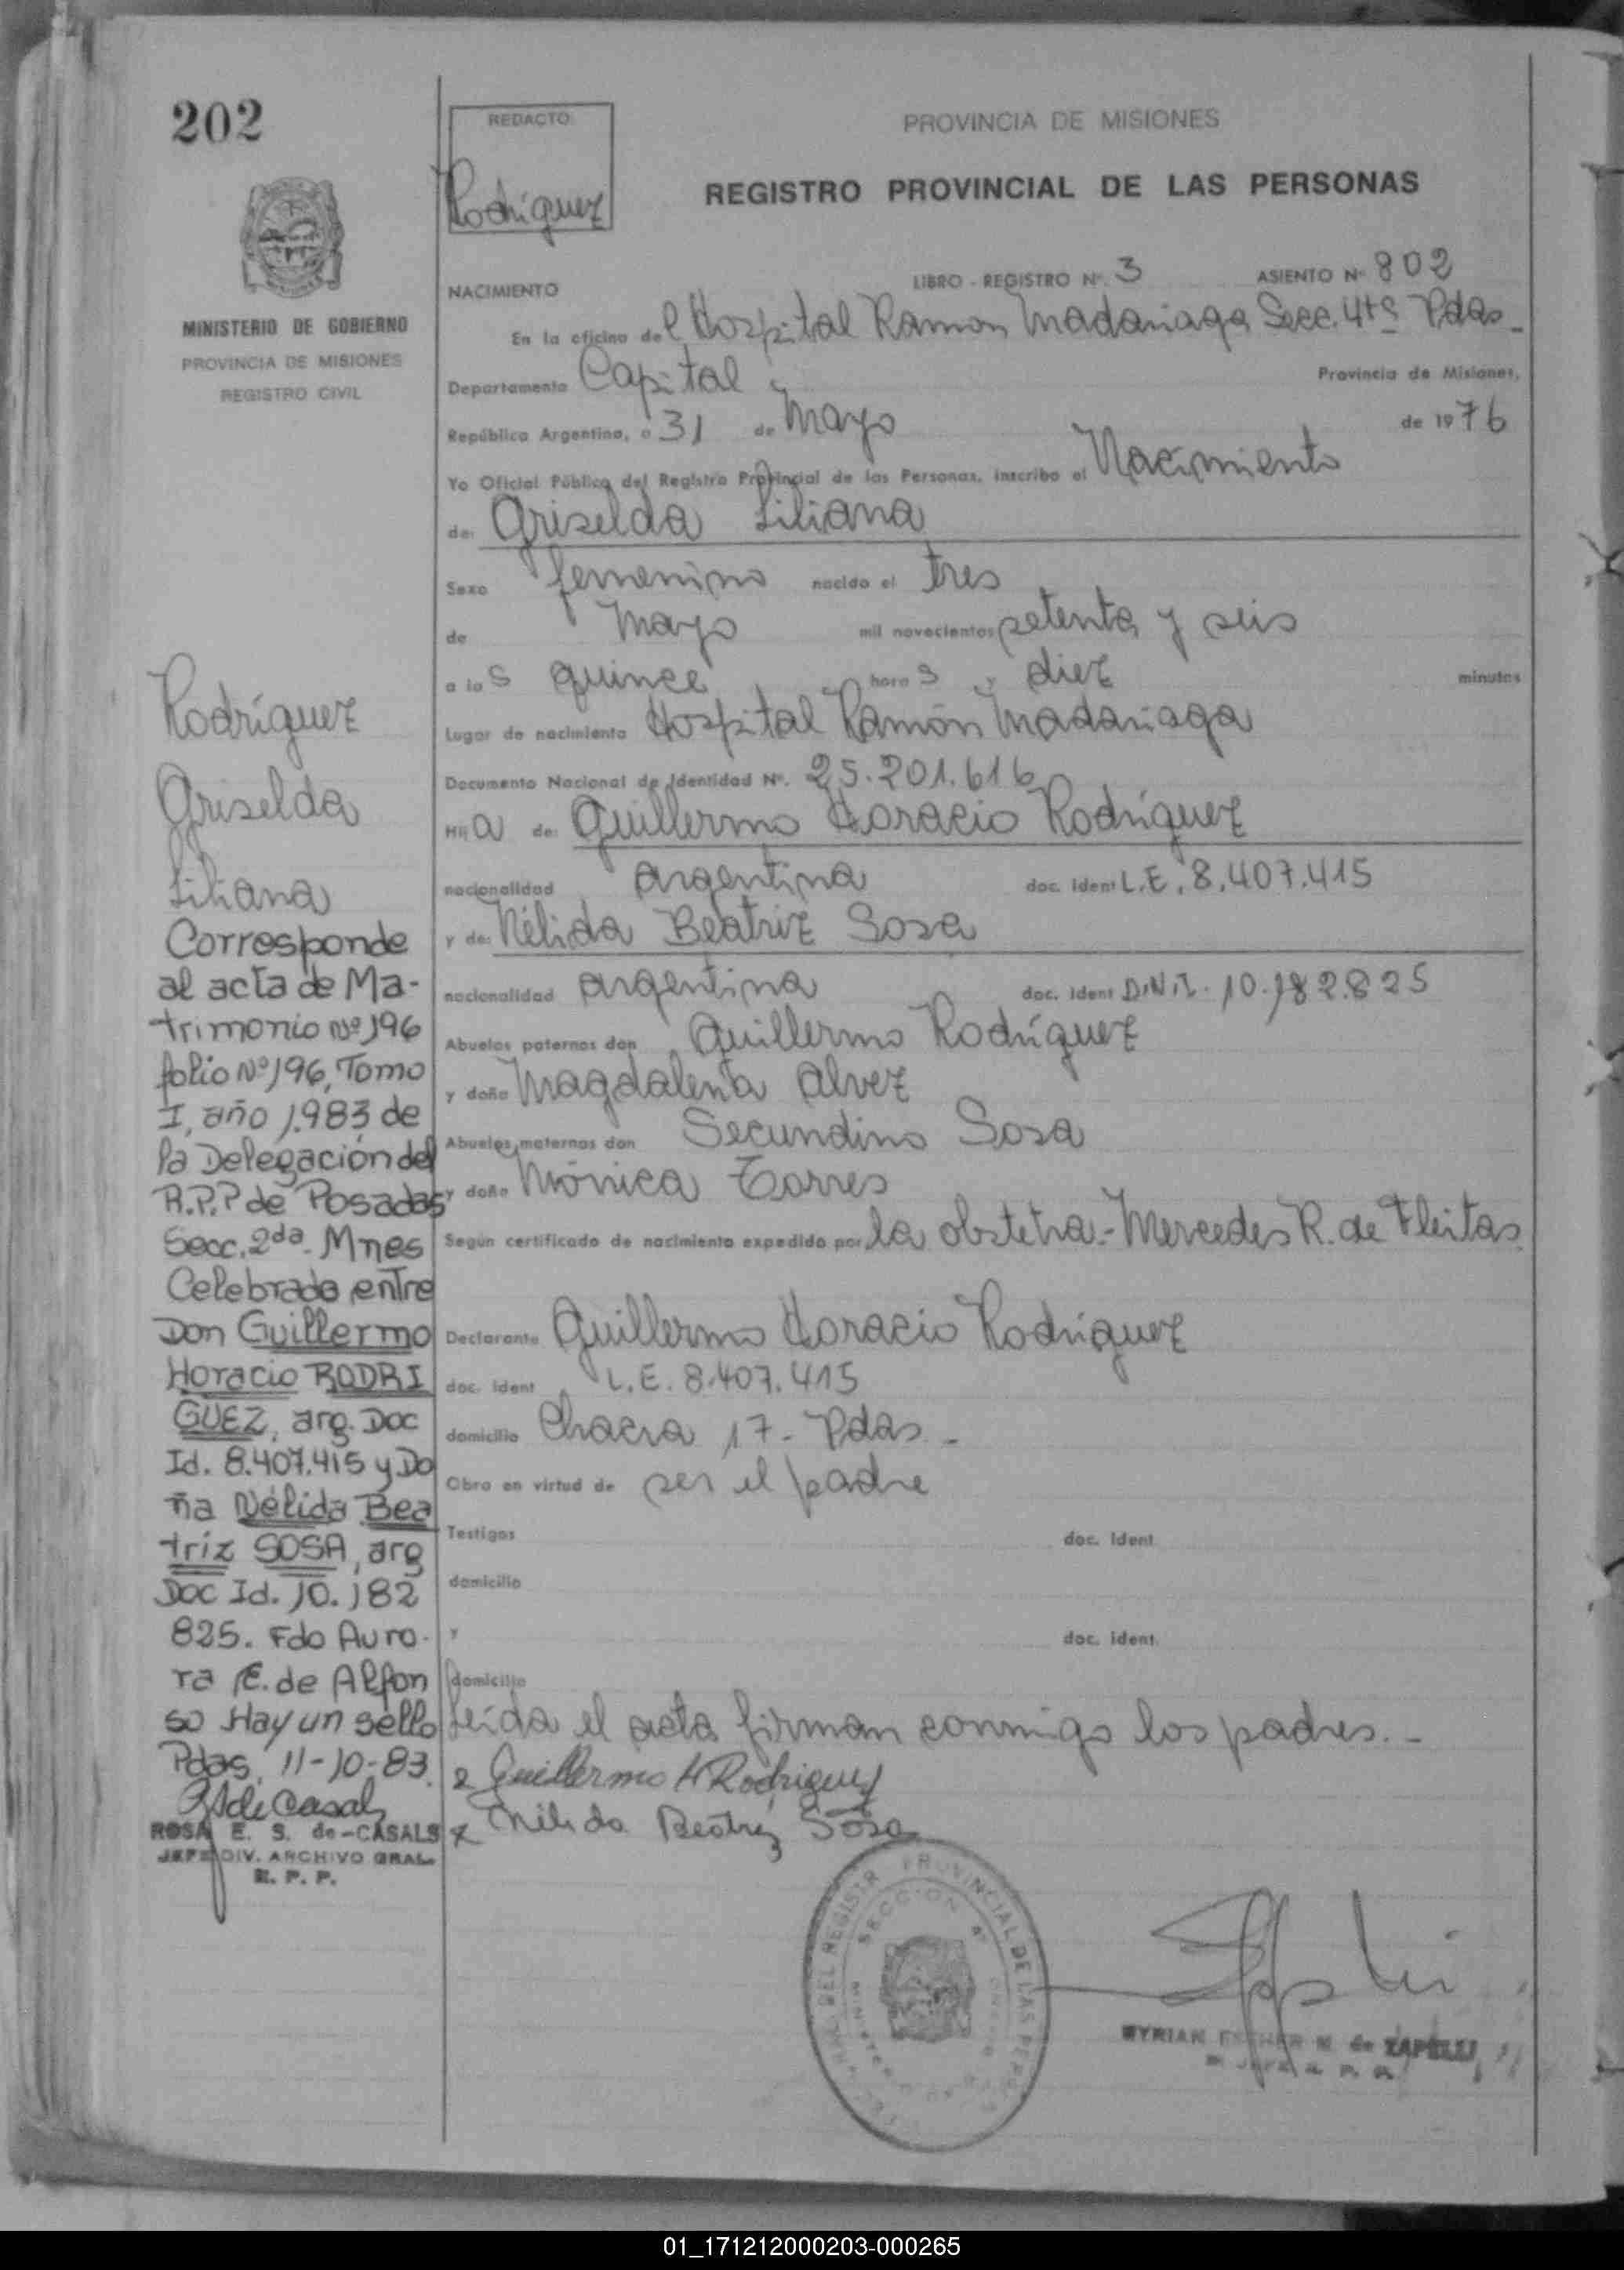 202
MINISTERIO DE GOBIERNO
PROVINCIA DE MISIONES
REGISTRO CIVIL
REDACTO:
Rodríguez
PROVINCIA DE MISIONES
REGISTRO PROVINCIAL DE LAS PERSONAS
NACIMIENTO LIBRO - REGISTRO Nº. 3 ASIENTO Nº 802
En la oficina del Hospital Ramon Madariaga Secc. 4ta Pdas -
Departamento Capital Provincia de Misiones,
República Argentina, a 31 de Mayo de 1976
Yo Oficial Público del Registro Provincial de las Personas, inscribo el Nacimiento
de: Griselda Liliana
Sexo femenino nacido el tres
de Mayo mil novecientos setenta y seis
a las quince horas y diez minutos
Lugar de nacimiento Hospital Ramón Madariaga
Documento Nacional de Identidad Nº. 25.201.616
Hija de: Guillermo Horacio Rodríguez
nacionalidad argentina doc. ident L.E. 8.407.415
y de: Nélida Beatriz Sosa
nacionalidad argentina doc. ident D.N.I. 10.182.825
Abuelos paternos don Guillermo Rodríguez
y doña Magdalena Alvez
Abuelos maternos don Secundino Sosa
y doña Mónica Torres
Según certificado de nacimiento expedido por la obstetra - Mercedes R. de Fleitas.
Declarante Guillermo Horacio Rodríguez
doc. ident L.E. 8.407.415
domicilio Chacra 17 - Pdas -
Obra en virtud de ser el padre
Testigos doc. ident
domicilio
y doc. ident.
domicilio
Leída el acta firman conmigo los padres. -
Guillermo H Rodriguez
x Nélida Beatriz Sosa
Rodríguez
Griselda
Liliana
Corresponde
al acta de Ma-
trimonio Nº 196
folio Nº 196, Tomo
I, año 1.983 de
la Delegación del
R.P.P de Posadas
Secc. 2da - Mnes
Celebrado entre
Don Guillermo
Horacio RODRI
GUEZ, arg. Doc
Id. 8.407.415 y Do
ña Nélida Bea
triz SOSA, arg
Doc Id. 10.182
825. Fdo Auro-
ra E. de Alfon
so Hay un sello
Pdas, 11-10-83.
ROSA E. S. de CASALS
JEFE DIV. ARCHIVO GRAL.
R. P. P.
REGISTR PROVINCIAL DE LAS PERS
SECCION 4ª
MYRIAN ESTHER M de ZAPELLI
01_171212000203-000265